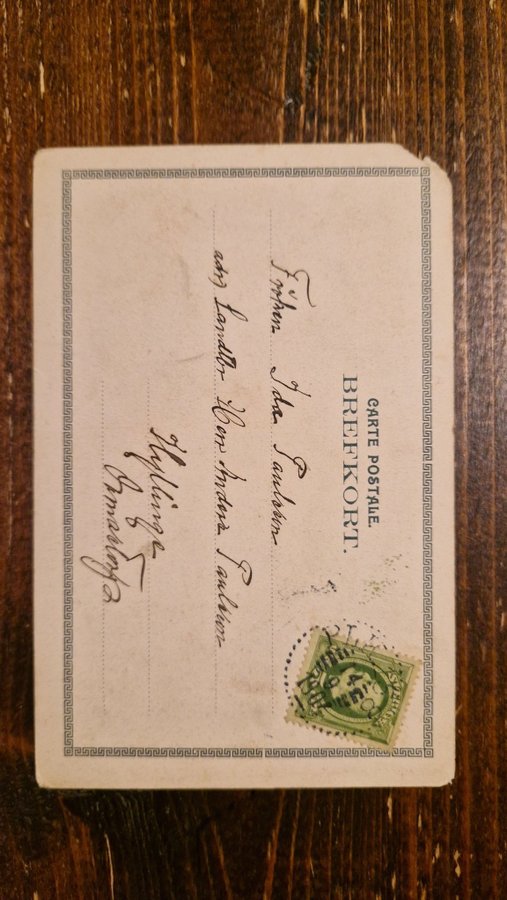 CARTE POSTALE.
BREFKORT.
Fröken Ida Paulsson
adrs Landtbr Herr Anders Paulsson
Hyllinge
SVERIGE